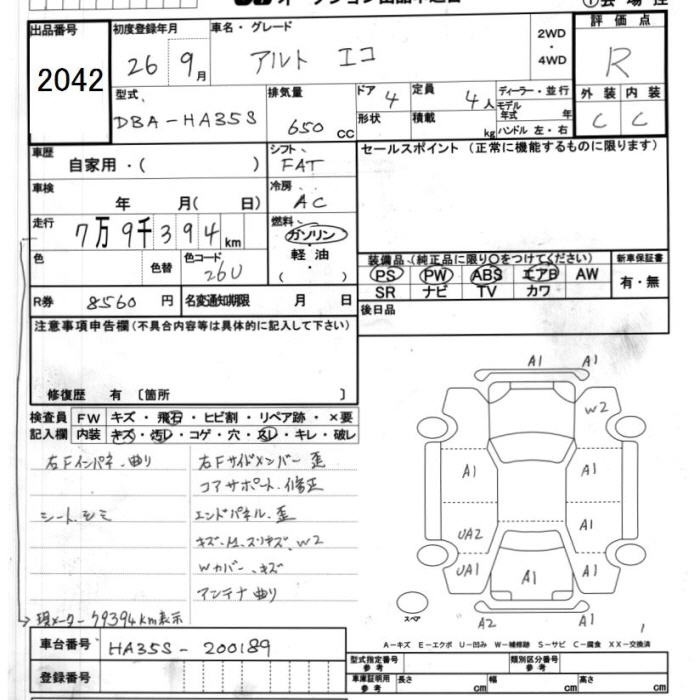 出品番号
2042
初度登録年月
26 9月
車名・グレード
アルト エコ
2WD
・
4WD
評価点
R
型式
DBA-HA35S
排気量
650 cc
ドア
4
形状
定員
4人
積載
kg
ディーラー・並行
モデル年式 年
ハンドル 左・右
外装 内装
C C
車歴
自家用・( )
シフト
FAT
セールスポイント (正常に機能するものに限ります)
車検
年 月( 日)
冷房
AC
走行
7万9千394km
燃料
ガソリン
軽油
( )
色
色替
色コード
26U
装備品 (純正品に限り○をつけてください)
PS PW ABS エアB AW
SR ナビ TV カワ
新車保証書
有・無
R券 8560円
名変通知期限 月 日
後日品
注意事項申告欄(不具合内容等は具体的に記入して下さい)
修復歴 有 〔箇所 〕
検査員
記入欄
FW キズ・飛石・ヒビ割・リペア跡・×要
内装 キズ・汚レ・コゲ・穴・スレ・キレ・破レ
右Fインパネ、曲り
右Fサイドメンバー歪
コアサポート、修正
シート、シミ
エンドパネル、歪
キズ、A1、スリキズ、W2
Wカバー、キズ
アンテナ曲り
現メーター79394km表示
A1 A1
W2
A1 A1
UA2 A1
UA1 A1 A1
スペア
A2 A1
A-キズ E-エクボ U-凹み W-補修跡 S-サビ C-腐食 XX-交換済
車台番号 HA35S-200189
登録番号
型式指定番号
参考
類別区分番号
参考
車庫証明用
参考
長さ cm 幅 cm 高さ cm